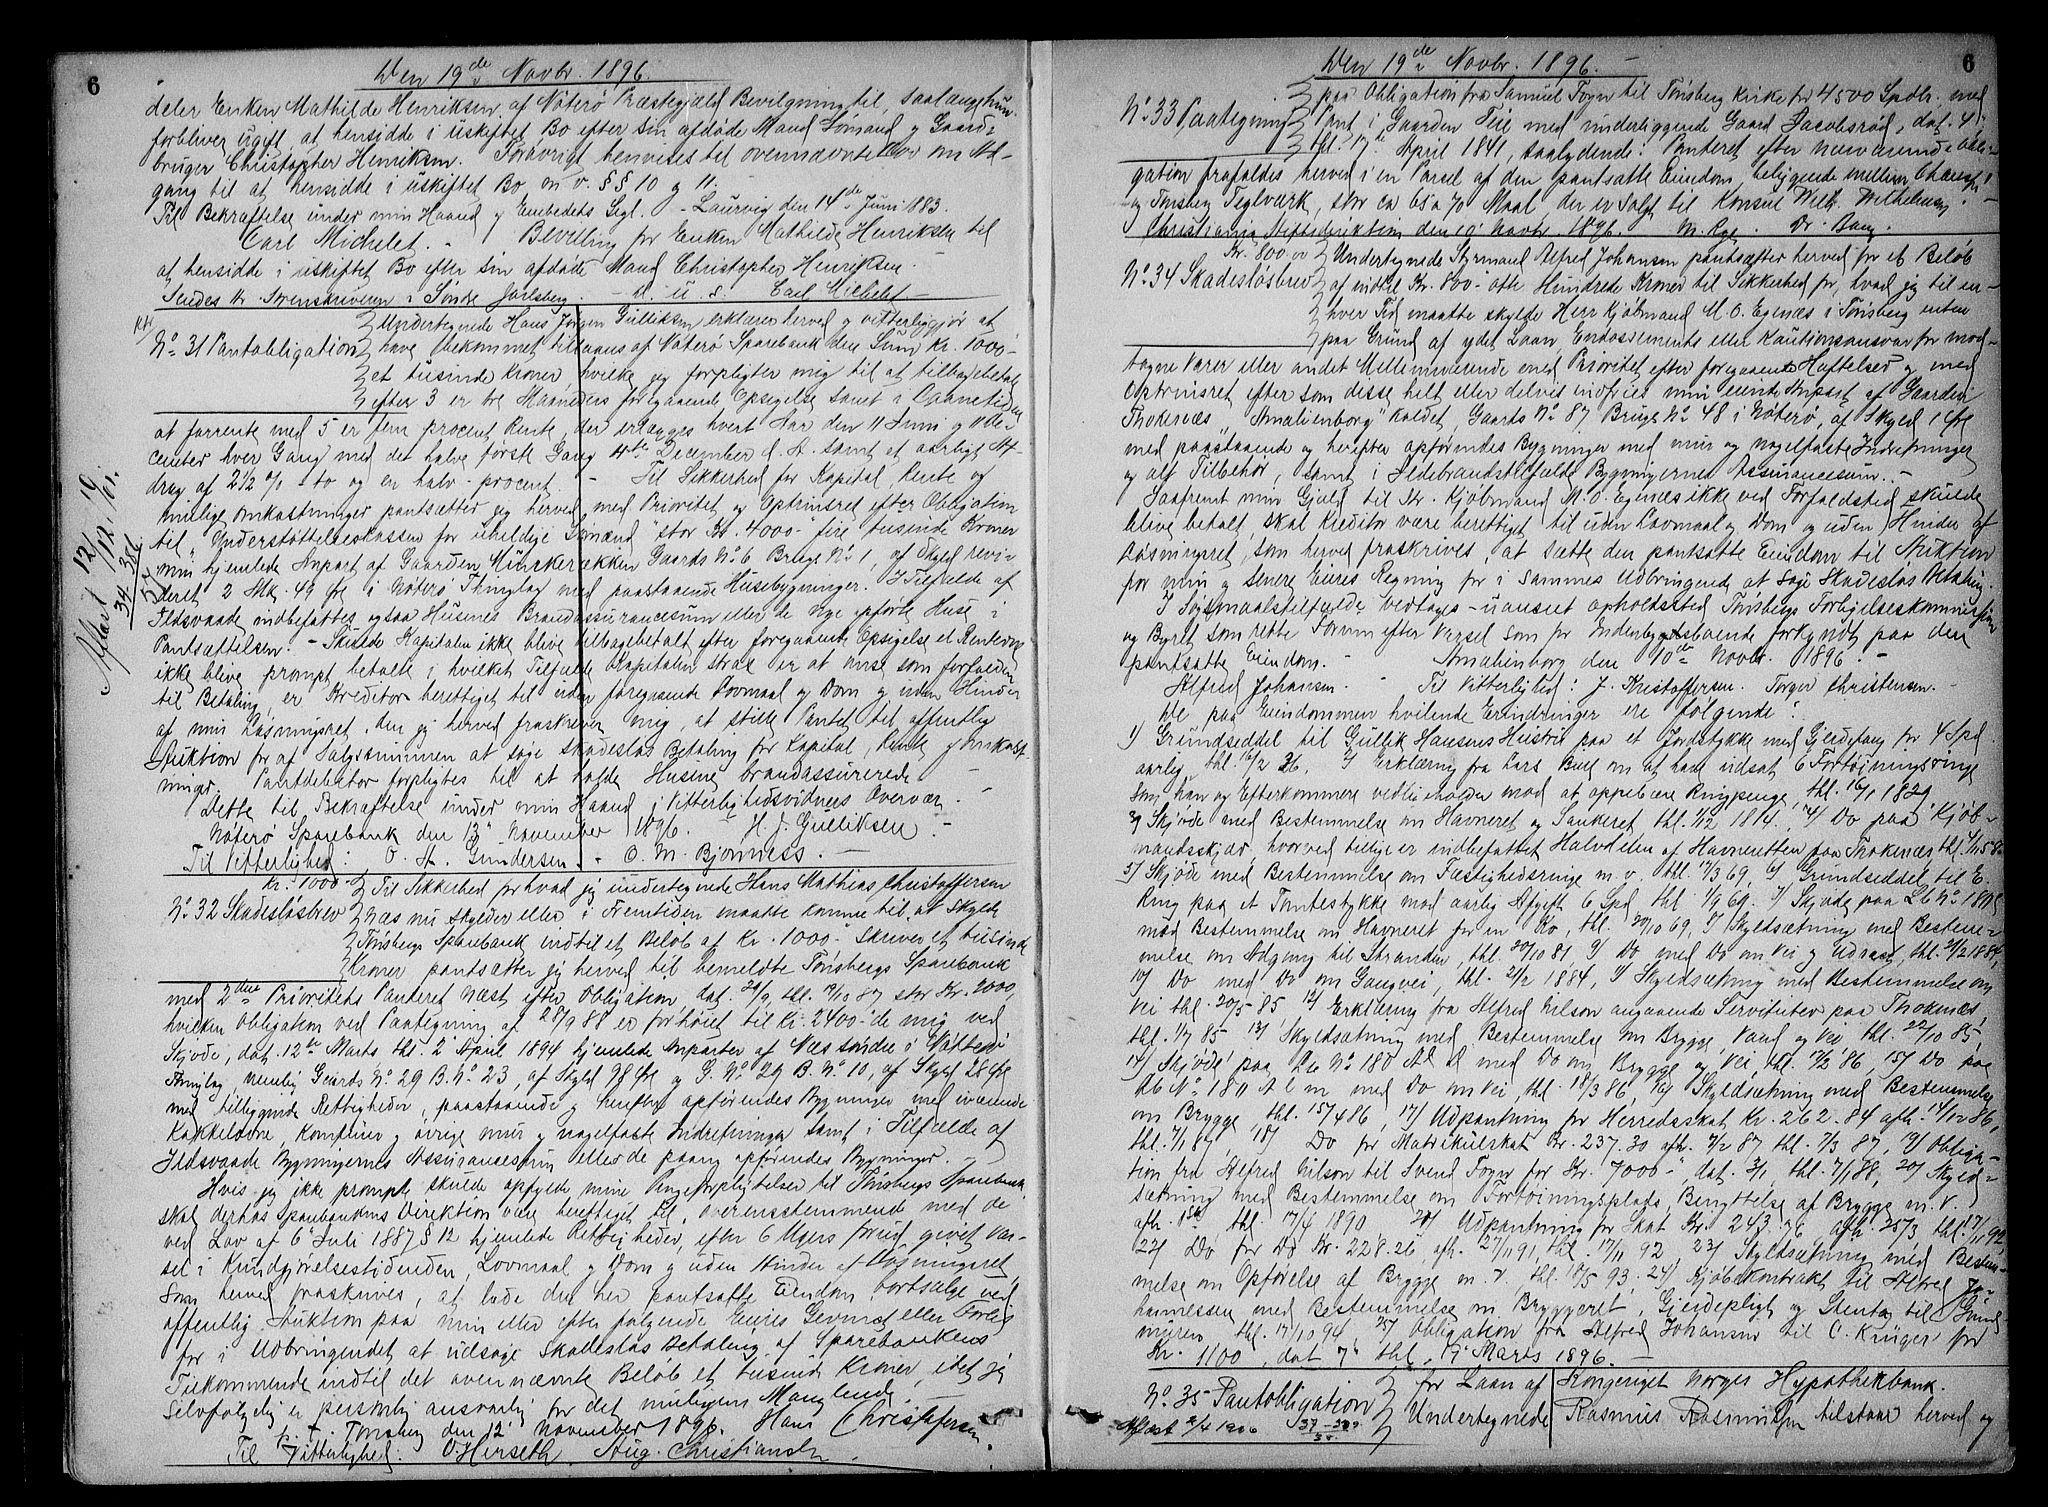 6
Den 19de Novbr. 1896.
deler Enken Mathilde Henriksen af Nøterø Præstegjæld Bevilgning til, saalænge hun
forbliver ugift, at hensidde i uskiftet Bo efter sin afdøde Mand Sømand og Gaard-
bruger Christopher Henriksen. Forøvrigt henvises til ovennævnte Lov om Ad-
gang til at hensidde i uskiftet Bo m. v. §§ 10 og 11.
Til Bekræftelse under min Haand og Embedets Segl. - Laurvig den 14de Juni 1883.
Carl Michelet. - Bevilling for Enken Mathilde Henriksen til
at hensidde i uskiftet Bo efter sin afdøde Mand Christopher Henriksen. -
Sendes Hr. Sorenskriveren i Søndre Jarlsberg. - D. u. s. Carl Michelet -
No. 31 Pantobligation
Undertegnede Hans Jørgen Gulliksen erklærer herved og vitterliggjør at
have bekommet tillaans af Nøterø Sparebank den Sum Kr. 1000-
et tusinde Kroner, hvilke jeg forpligter mig til at tilbagebetale
efter 3 er tre Maaneders foregaaende Opsigelse samt i Laanetiden
at forrente med 5 er fem procent Rente, der erlægges hvert Aar den 11 Juni og 11 De-
cember hver Gang med det halve første Gang 11te December d. A. samt et aarligt Af-
drag af 2 1/2 % - to og en halv - procent. - Til Sikkerhed for Kapital, Rente og
mulige Omkostninger pantsætter jeg herved med Prioritet og Optrinsret efter Obligation
til "Understøttelseskassen for uheldige Sømænd" stor Kr. 4000-" fire tusende Kroner
min hjemlede Anpart af Gaarden Munkerækken Gaards No. 6 Brugs No. 1, af Skyld revi-
deret 2 Mk. 49 Øre i Nøterø Thinglag med paastaaende Husebygninger. I Tilfælde af
Ildsvaade indbefattes ogsaa Husenes Brandassurancesum eller de nye opførte Huse i
Pantsættelsen. - Skulde Kapitalen ikke blive tilbagebetalt efter foregaaende Opsigelse el. Renterne
ikke blive prompt betalte i hvilket Tilfælde Kapitalen strax er at anse som forfalden
til Betaling, er Kreditor berettiget til uden foregaaende Lovmaal og Dom og uden Hinder
af min Løsningsret, den jeg herved fraskriver mig, at stille Pantet til offentlig
Auktion for af Salgssummen at søge skadesløs Betaling for Kapital, Rente og Omkost-
ninger. Pantdebitor forpligtes til at holde Husene brandassurerede -
Dette til Bekræftelse under min Haand i Vitterlighedsvidners Overvær. -
Nøterø Sparebank den 13de November 1896. H. J. Gulliksen. -
Til Vitterlighed: O. A. Gundersen. - O. M. Bjønness. -
Aflæst 12/12 01.
34 36
Kr. 1000-
No. 32 Skadesløsbrev
Til Sikkerhed for hvad jeg undertegnede Hans Mathias Christoffersen
Næs nu skylder eller i Fremtiden maatte komme til at skylde
Tønsbergs Sparebank indtil et Beløb af Kr. 1000-" skriver et tusinde
Kroner pantsætter jeg herved til bemeldte Tønsbergs Sparebank
med 2den Prioritets Panteret næst efter Obligation, dat. 24/9, thl. 19/10 87 stor Kr. 2000,
hvilken Obligation ved Paategning af 28/9 88 er forhøiet til Kr. 2400-" de mig ved
Skjøde, dat. 12te Marts thl. 2 April 1894 hjemlede Anparter af Næs søndre i Nøtterø
Thinglag, nemlig Gaards No. 29 B. No. 23, af Skyld 98 Øre og G. No. 29 B. No. 10, af Skyld 28 Øre
med tilliggende Rettigheder, paastaaende og herefter opførendes Bygninger med iværende
Kakkelovne, Komfurer og øvrige mur og nagelfaste Indretninger samt i Tilfælde af
Ildsvaade Bygningernes Assurancesum eller de paany opførendes Bygninger. -
Hvis jeg ikke prompte skulde opfylde mine Pengeforpligtelser til Tønsbergs Sparebank,
skal derhos Sparebankens Direktion være berettiget til, overensstemmende med de
ved Lov af 6 Juli 1887 § 12 hjemlede Rettigheder, efter 6 Ugers forud givet Var-
sel i Kundgjørelsestidenden, Lovmaal og Dom og uden Hinder af Løsningsret,
som herved fraskrives, at lade den her pantsatte Eiendom bortsælge ved
offentlig Auktion paa min eller efterfølgende Eieres Gevinst eller Forlis
for i Udbringendet at udsøge skadesløs Betaling af Sparebankens
Tilkommende indtil det ovennævnte Beløb et tusinde Kroner, idet jeg
selvfølgelig er personlig ansvarlig for det muligens Manglende.
p. t. Tønsberg den 12 November 1896. Hans Christofersen.
Til Vitterlighed: O. Herseth. Aug. Christiansen
6
Den 19de Novbr. 1896. -
No. 33 Paategning
paa Obligation fra Samuel Foyn til Tønsberg Kirke for 4500 Spdlr. med
Pant i Gaarden Teie med underliggende Gaard Jacobsrød, dat. 4.
thl. 17de April 1841, saalydende: Panteret efter nærværende Obli-
gation frafaldes herved i en Parsel af den pantsatte Eiendom, beliggende mellem
og Tønsberg Teglværk, stor ca 65 a 70 Maal, der er solgt til Konsul Wilh. Wilhelmsen. -
Christiania Stiftsdirektion den 10 Novbr. 1896. M. Rye. Dr. Bang.
Kr. 800.00
No. 34 Skadesløsbrev
Undertegnede Styrmand Alfred Johansen pantsætter herved for et Beløb
af indtil Kr. 800-" otte Hundrede Kroner til Sikkerhed for, hvad jeg til en-
hver Tid maatte skylde Herr Kjøbmand M. O. Egenæs i Tønsberg enten
paa Grund af ydet Laan, Endossements eller Kautionsansvar for mod-
tagne Varer eller andet Mellemværende med Prioritet efter foregaaende Hæftelser og med
Optrinsret efter som disse helt eller delvis indfries min eiende Anpart af Gaarden
Thokenæs "Amalienborg" kaldet, Gaards No. 87, Brugs No. 48 i Nøterø, af Skyld 1 Øre
med paastaaende og herefter opførendes Bygninger med mur og nagelfaste Indretninger
og alt Tilbehør, samt i Ildebrandstilfælde Bygningernes Assurancesum. -
Saafremt min Gjæld til Hr. Kjøbmand M. O. Egenæs ikke ved Forfaldstid skulde
blive betalt, skal Kreditor være berettiget til uden Lovmaal og Dom og uden Hinder af
Løsningsret, som herved fraskrives, at sætte den pantsatte Eiendom til Auktion
for min og senere Eieres Regning for i sammes Udbringende at søge skadesløs Betaling.
I Søgsmaalstilfælde vedtages - uanseet opholdssted Tønsbergs Forligelseskommission
og Byret som rette Forum efter Varsel som for Indenbygdsboende forkyndt paa den
pantsatte Eiendom. - Amalienborg den 10de Novbr. 1896. -
Alfred Johansen. - Til Vitterlighed: J. Kristoffersen. Torger Christensen. -
De paa Eiendommen hvilende Erindringer ere følgende:
1) Grundseddel til Gullik Hansens Hustru paa et Jordstykke med Gjærdefang for 4 Spd
aarlig, thl. 16/2 26. 2) Erklæring fra Lars Buel om at have udsat 6 Fortøiningsringe
som han og Efterkommere vedligeholder mod at oppebære Ringpenge, thl. 16/1 1829
3) Skjøde med Bestemmelse om Havneret og Tankeret, thl. 1/2 1814, 4) Do paa "Kjøb-
mandsskjær, hvorved tillige er indbefattet Halvdelen af Havneretten paa Thokenæs thl. 4/11 58.
5) Skjøde med Bestemmelse om Fæstighedsringe m. v. thl. 17/3 69, 6) Grundseddel til E.
Ring paa et Tomtestykke mod aarlig Afgift 6 Spd thl. 1/9 69. 7) Skjøde paa Lb No. 180
med Bestemmelse om Havneret for en Ko, thl. 20/10 69, 8) Skyldsætning med Bestem-
melse om Adgang til Stranden, thl. 20/10 81, 9) Do med Do om Vei og Udrast, thl. 21/2 1884,
10) Do med Do om Gangvei, thl. 21/2 1884, 11) Skyldsætning med Bestemmelse om
Vei thl. 20/5 - 85 12) Erklæring fra Alfred Wilson angaaende Servituter paa Thokenæs,
thl. 1/7 85 13) Skyldsætning med Bestemmelse om Brygge, Vand og Vei thl. 22/10 85,
14) Skjøde paa Lb No. 180 med Do om Brygge og Vei, thl. 17/2 86, 15) Do paa
Lb No. 180 med Do om Vei, thl. 18/3 86, 16) Skyldsætning med Bestemmelse
om Brygge, thl. 15/4 86, 17) Udpantning for Herredsskat Kr. 262.84 afh. 14/12 86,
thl. 7/1 87, 18) Do for Matrikulskat Kr. 237.30 afh. 7/2 87 thl. 7/3 87, 19) Obliga-
tion fra Alfred Wilson til Svend Foyn for Kr. 7000-" dat. 3/1, thl. 7/1 88, 20) Skyld-
sætning med Bestemmelse om Fortøiningsplads, Benyttelse af Brygge m. V.
thl. 17/4 1890 21) Udpantning for Skat Kr. 243.76 afh. 25/3, thl. 17/11 92,
22) Do for Do Kr. 228.26, afh. 27/11 91, thl. 17/11 92, 23) Skyldsætning med Bestem-
melse om Opførelse af Brygge m. v. thl. 17/5 93. 24) Kjøbekontrakt til Alfred Jo-
hannessen med Bestemmelse om Bryggeret, Gjerdepligt og Stentag til Grund-
muren, thl. 17/10 94, 25) Obligation fra Alfred Johansen til O. Krüger for
Kr. 1100, dat 7de thl. 9de Marts 1896. -
No. 35 Pantobligation
for Laan af Kongeriget Norges Hypothekbank.
Undertegnede Rasmus Rasmussen tilstaar herved og
Aflæst 2/4 1906